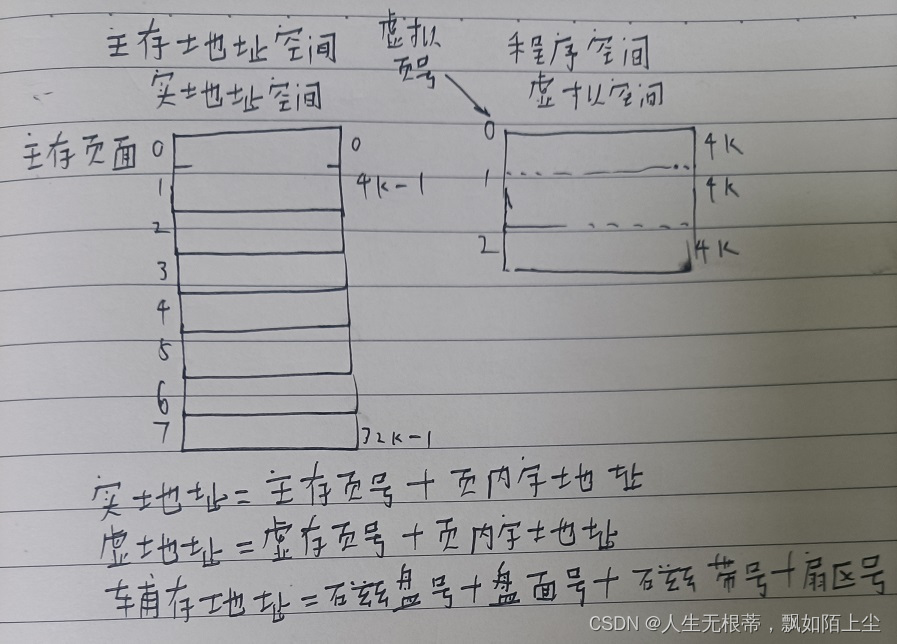 主存地址空间
实地址空间
虚拟
页号
程序空间
虚拟空间
主存页面
0
1
2
3
4
5
6
7
0
4K-1
32K-1
0
1
2
4K
4K
4K
实地址=主存页号+页内字地址
虚地址=虚存页号+页内字地址
辅存地址=磁盘号+盘面号+磁带号+扇区号
CSDN @人生无根蒂，飘如陌上尘